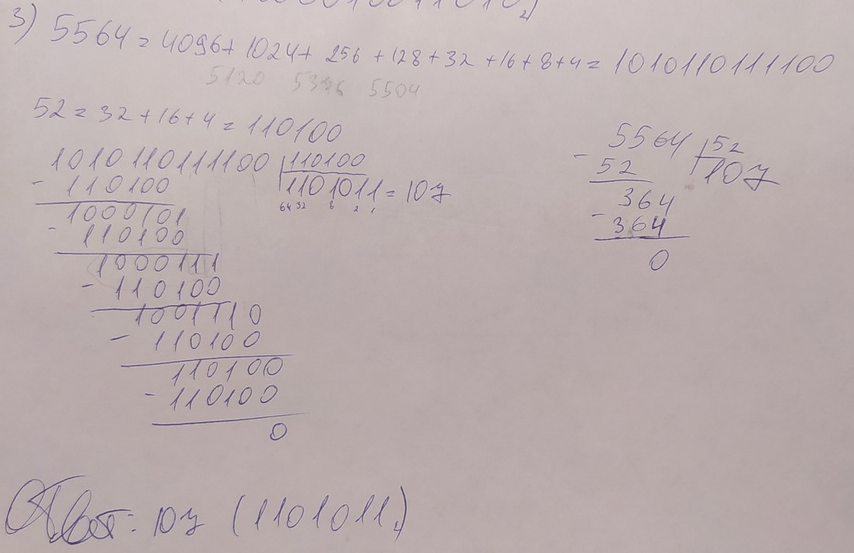 3) 5564 = 4096 + 1024 + 256 + 128 + 32 + 16 + 8 + 4 = 1010110111100
5120 5376 5504
52 = 32 + 16 + 4 = 110100
1010110111100 110100
- 110100 1101011 = 107
64 32 2 1
1000101
- 110100
1000111
- 110100
1001110
- 110100
110100
- 110100
0
- 5564 52
52 107
364
- 364
0
Ответ: 107 (1101011₂)